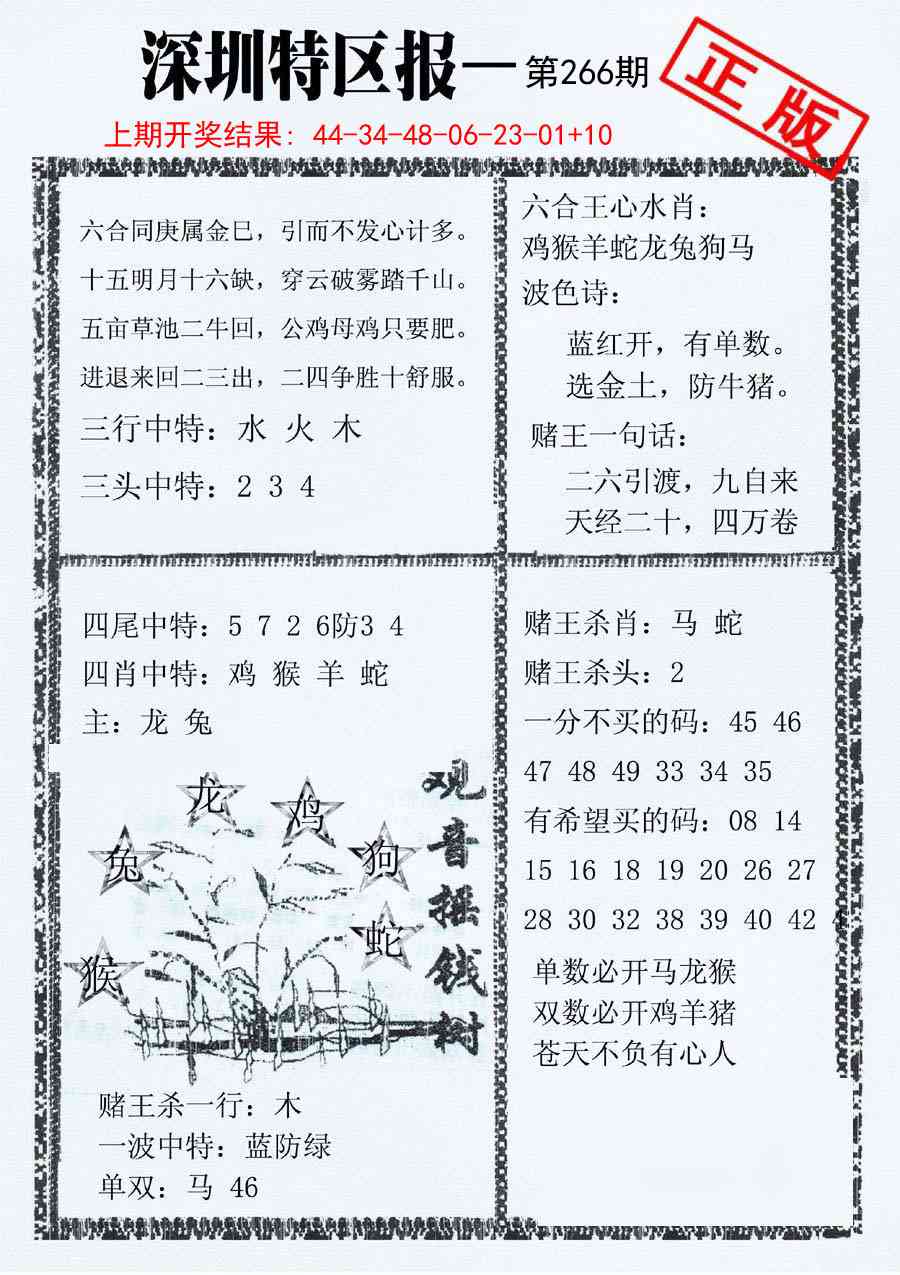 深圳特区报—第266期
正版
上期开奖结果：44-34-48-06-23-01+10
六合同庚属金巳，引而不发心计多。
十五明月十六缺，穿云破雾踏千山。
五亩草池二牛回，公鸡母鸡只要肥。
进退来回二三出，二四争胜十舒服。
三行中特：水 火 木
三头中特：2 3 4
六合王心水肖：
鸡猴羊蛇龙兔狗马
波色诗：
蓝红开，有单数。
选金土，防牛猪。
赌王一句话：
二六引渡，九自来
天经二十，四万卷
四尾中特：5 7 2 6防3 4
四肖中特：鸡 猴 羊 蛇
主：龙 兔
龙
鸡
兔
狗
蛇
猴
观音摇钱树
赌王杀一行：木
一波中特：蓝防绿
单双：马 46
赌王杀肖：马 蛇
赌王杀头：2
一分不买的码：45 46
47 48 49 33 34 35
有希望买的码：08 14
15 16 18 19 20 26 27
28 30 32 38 39 40 42
单数必开马龙猴
双数必开鸡羊猪
苍天不负有心人